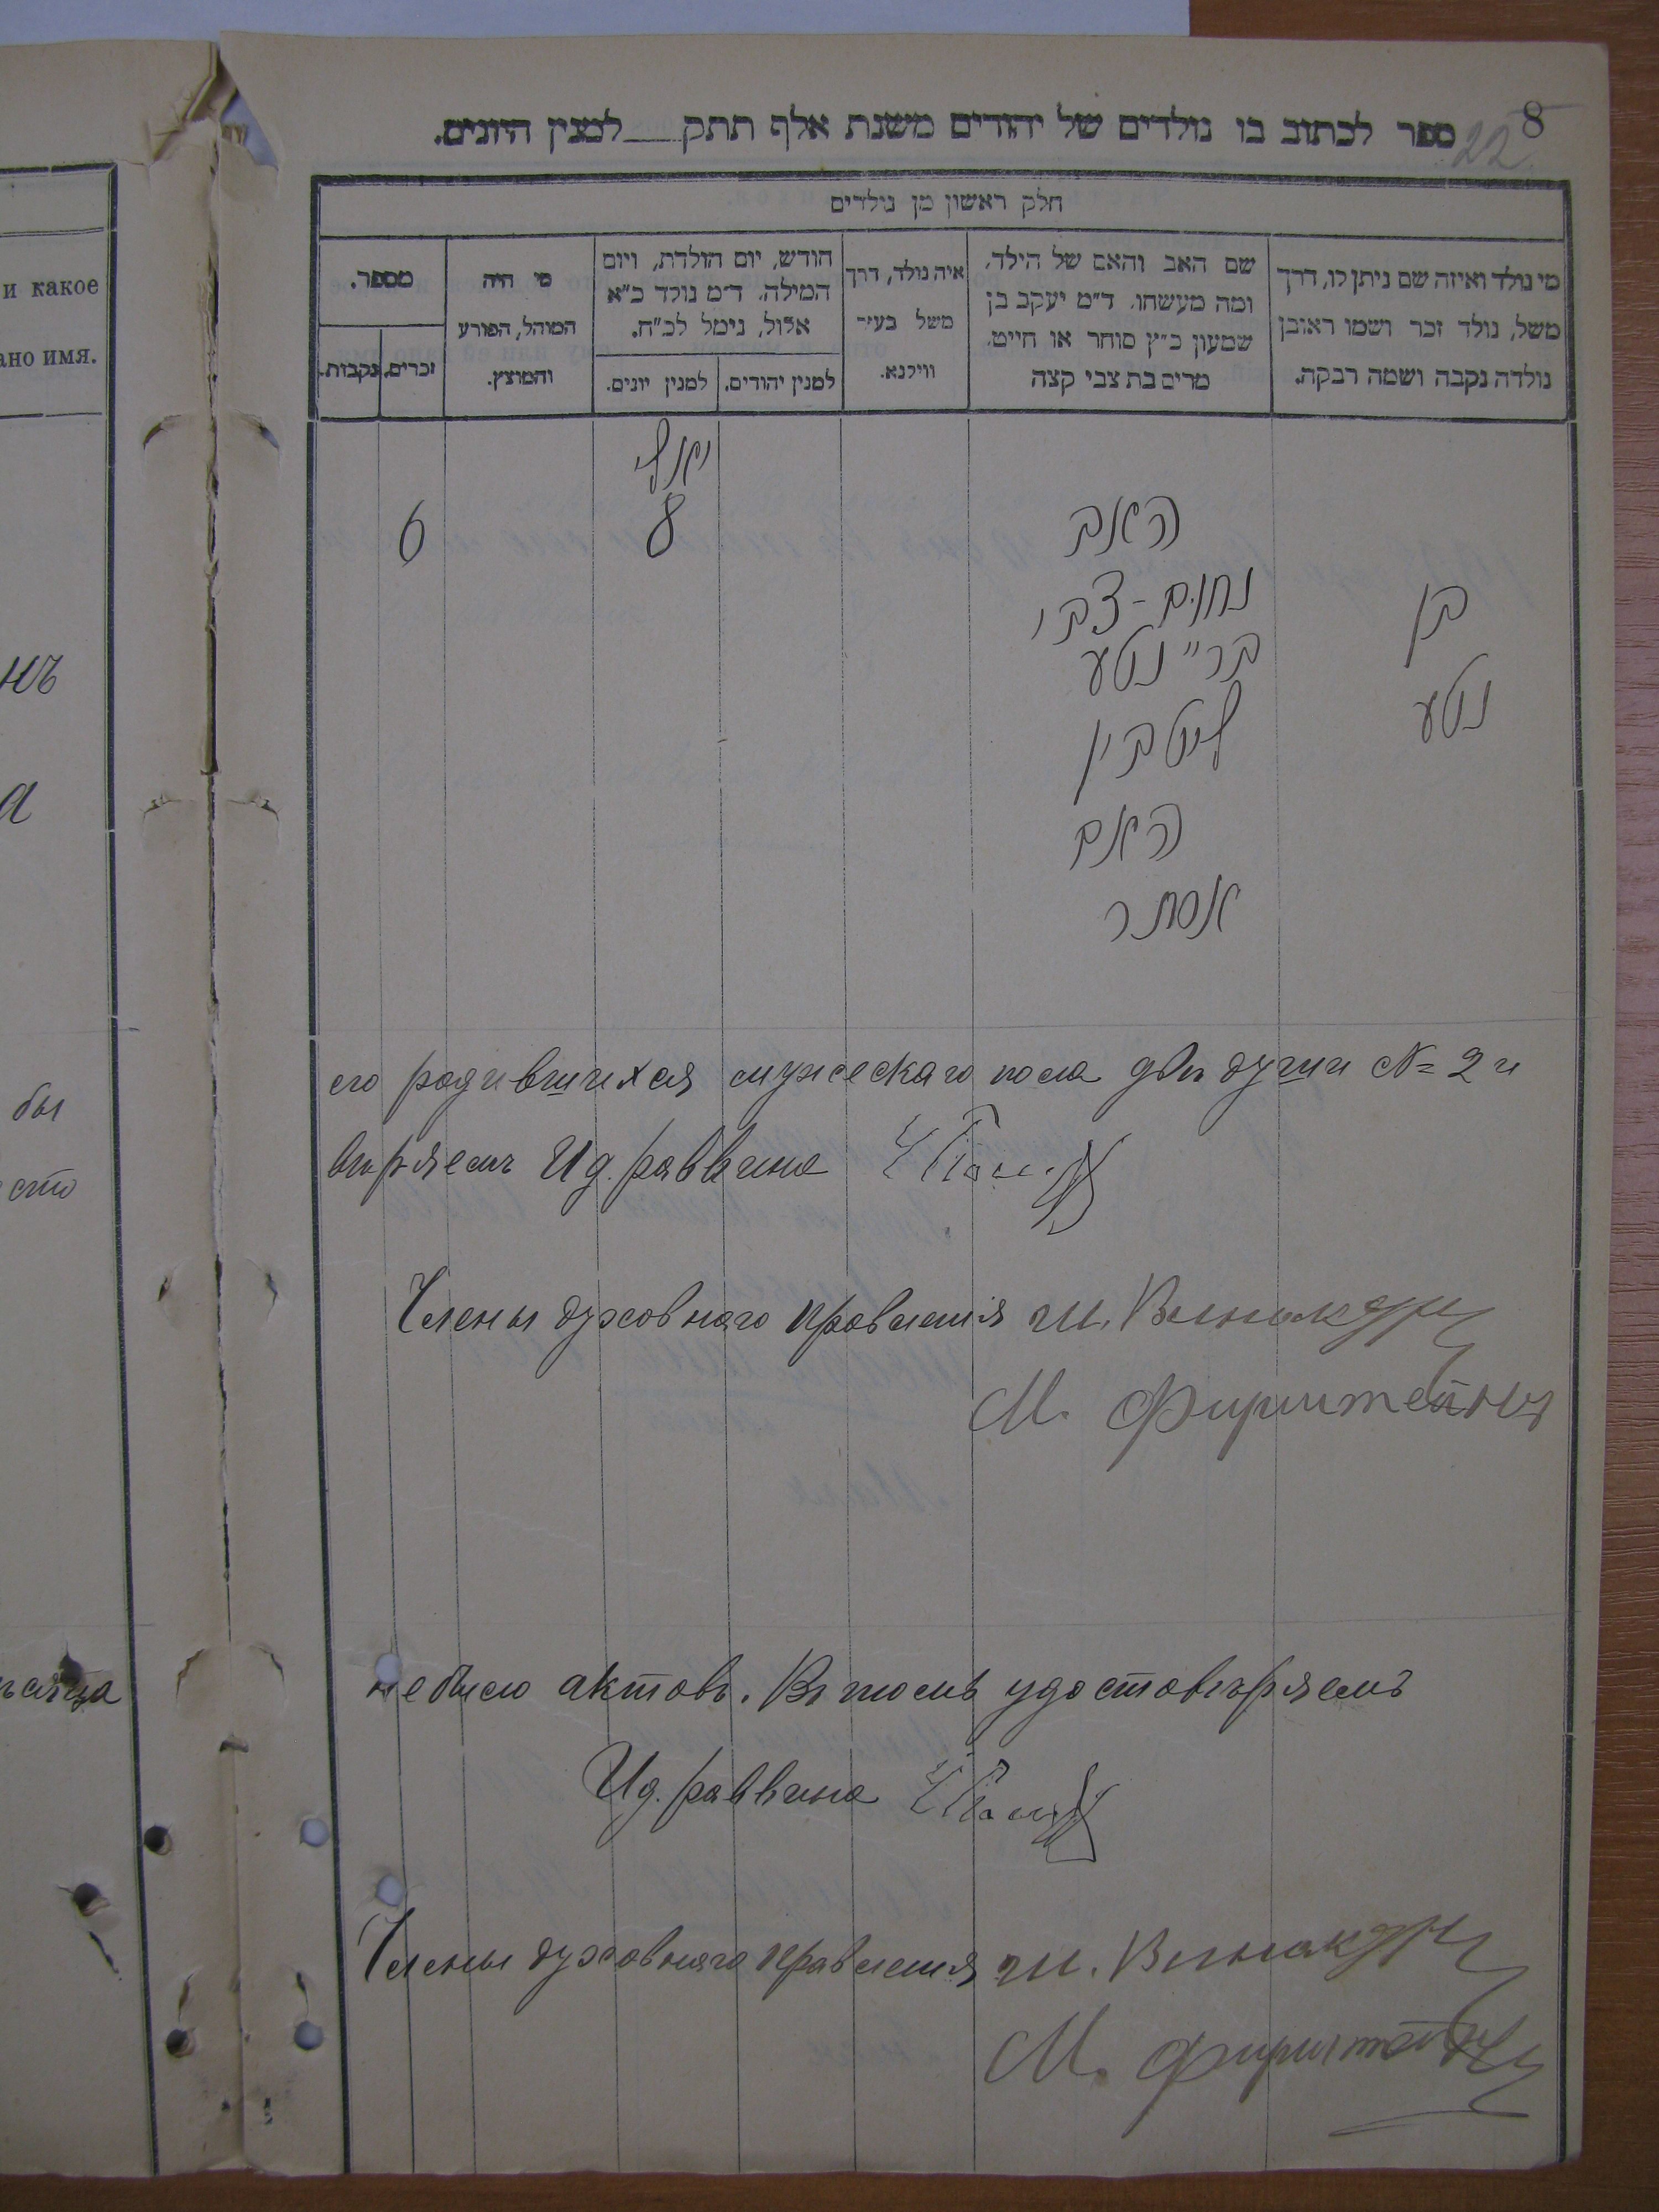 8
22
ספר לכתוב בו נולדים של יהודים משנת אלף תתק___למנין היונים.
חלק ראשון מן נולדים
מי נולד ואיזה שם ניתן לו, דרך
משל, נולד זכר ושמו ראובן
נולדה נקבה ושמה רבקה.
שם האב והאם של הילד,
ומה מעשהו. ד״מ יעקב בן
שמעון כ״ץ סוחר או חייט.
מרים בת צבי קצה
איה נולד, דרך
משל בעיר
ווילנא.
חודש, יום הולדת, ויום
המילה. ד״מ נולד כ״א
אלול, נימל לכ״ח.
למנין יהודים.
למנין יונים.
מי היה
המוהל, הפורע
והמוצץ.
מספר.
זכרים.
נקבות.
בן
נטע
האב
נחום-צבי
בר״ נטע
ליטבין
האם
אסתר
יולי
8
6
его родившихся мужескаго пола двѣ души № 2 и
вѣряемъ Ид. раввина
Члены духовнаго правленія Ш.
М. Фирштейнъ
не было актовъ. Въ томъ удостовѣряемъ
Ид. раввина
Члены духовнаго правленія Ш.
М. Фирштейнъ
и какое
ано имя.
нъ
а
бы
сто
ѣсяца